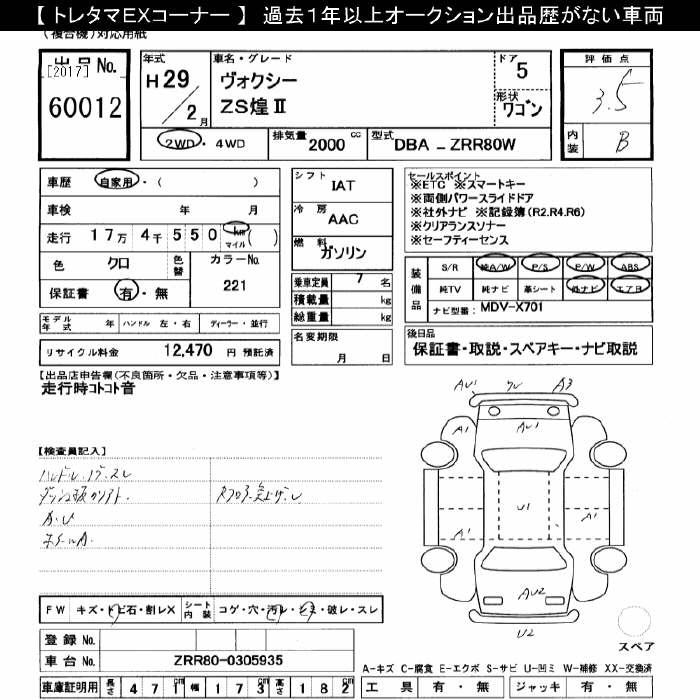 【 トレタマEXコーナー 】 過去１年以上オークション出品歴がない車両
(複合機)対応用紙
出品 No.
[2017]
60012
年式
H 29 / 2 月
車名・グレード
ヴォクシー
ZS煌Ⅱ
ドア 5
形状 ワゴン
2WD ・ 4WD
排気量 2000 cc
型式 DBA － ZRR80W
評価点
3.5
内装 B
車歴 自家用・( )
車検 年 月
走行 17万 4千 5 5 0 km マイル ( )
色 クロ 色替 カラーNo. 221
保証書 有・無
シフト IAT
冷房 AAC
燃料 ガソリン
乗車定員 7 名
積載量 kg
総重量 kg
セールスポイント
※ETC ※スマートキー
※両側パワースライドドア
※社外ナビ ※記録簿(R2.R4.R6)
※クリアランスソナー
※セーフティーセンス
装備品
S/R 純A/W P/S P/W ABS
純TV 純ナビ 革シート 外ナビ エアB
ナビ型番: MDV-X701
モデル年式 年 ハンドル 左・右 ディーラー・並行
リサイクル料金 12,470 円 預託済
名変期限 月 日
後日品
保証書・取説・スペアキー・ナビ取説
【出品店申告欄(不良箇所・欠品・注意事項等)】
走行時コトコト音
【検査員記入】
ハンドル
AU1 A3
A1 AU1 A1
A1 U1 A1
AU2
U2
スペア
FW キズ・トビ石・割レX シート内装 コゲ・穴・汚レ・シミ・破レ・スレ
登録 No.
車台 No. ZRR80-0305935
A-キズ C-腐食 E-エクボ S-サビ U-凹ミ W-補修 XX-交換済
車庫証明用 長さ 4 7 1 cm 幅 1 7 3 cm 高さ 1 8 2 cm
工具 有・無 ジャッキ 有・無